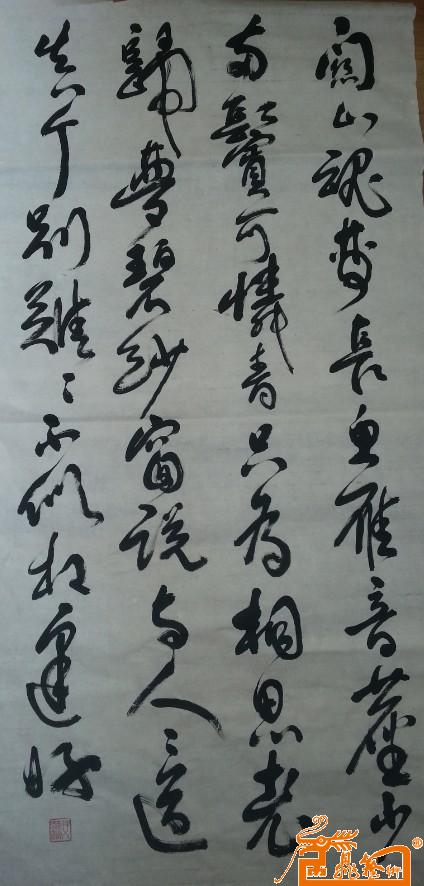 關山魂夢長魚雁音塵少
兩鬢可憐青只為相思老
歸夢碧紗窗說與人〻道
真个別難〻不似相逢好